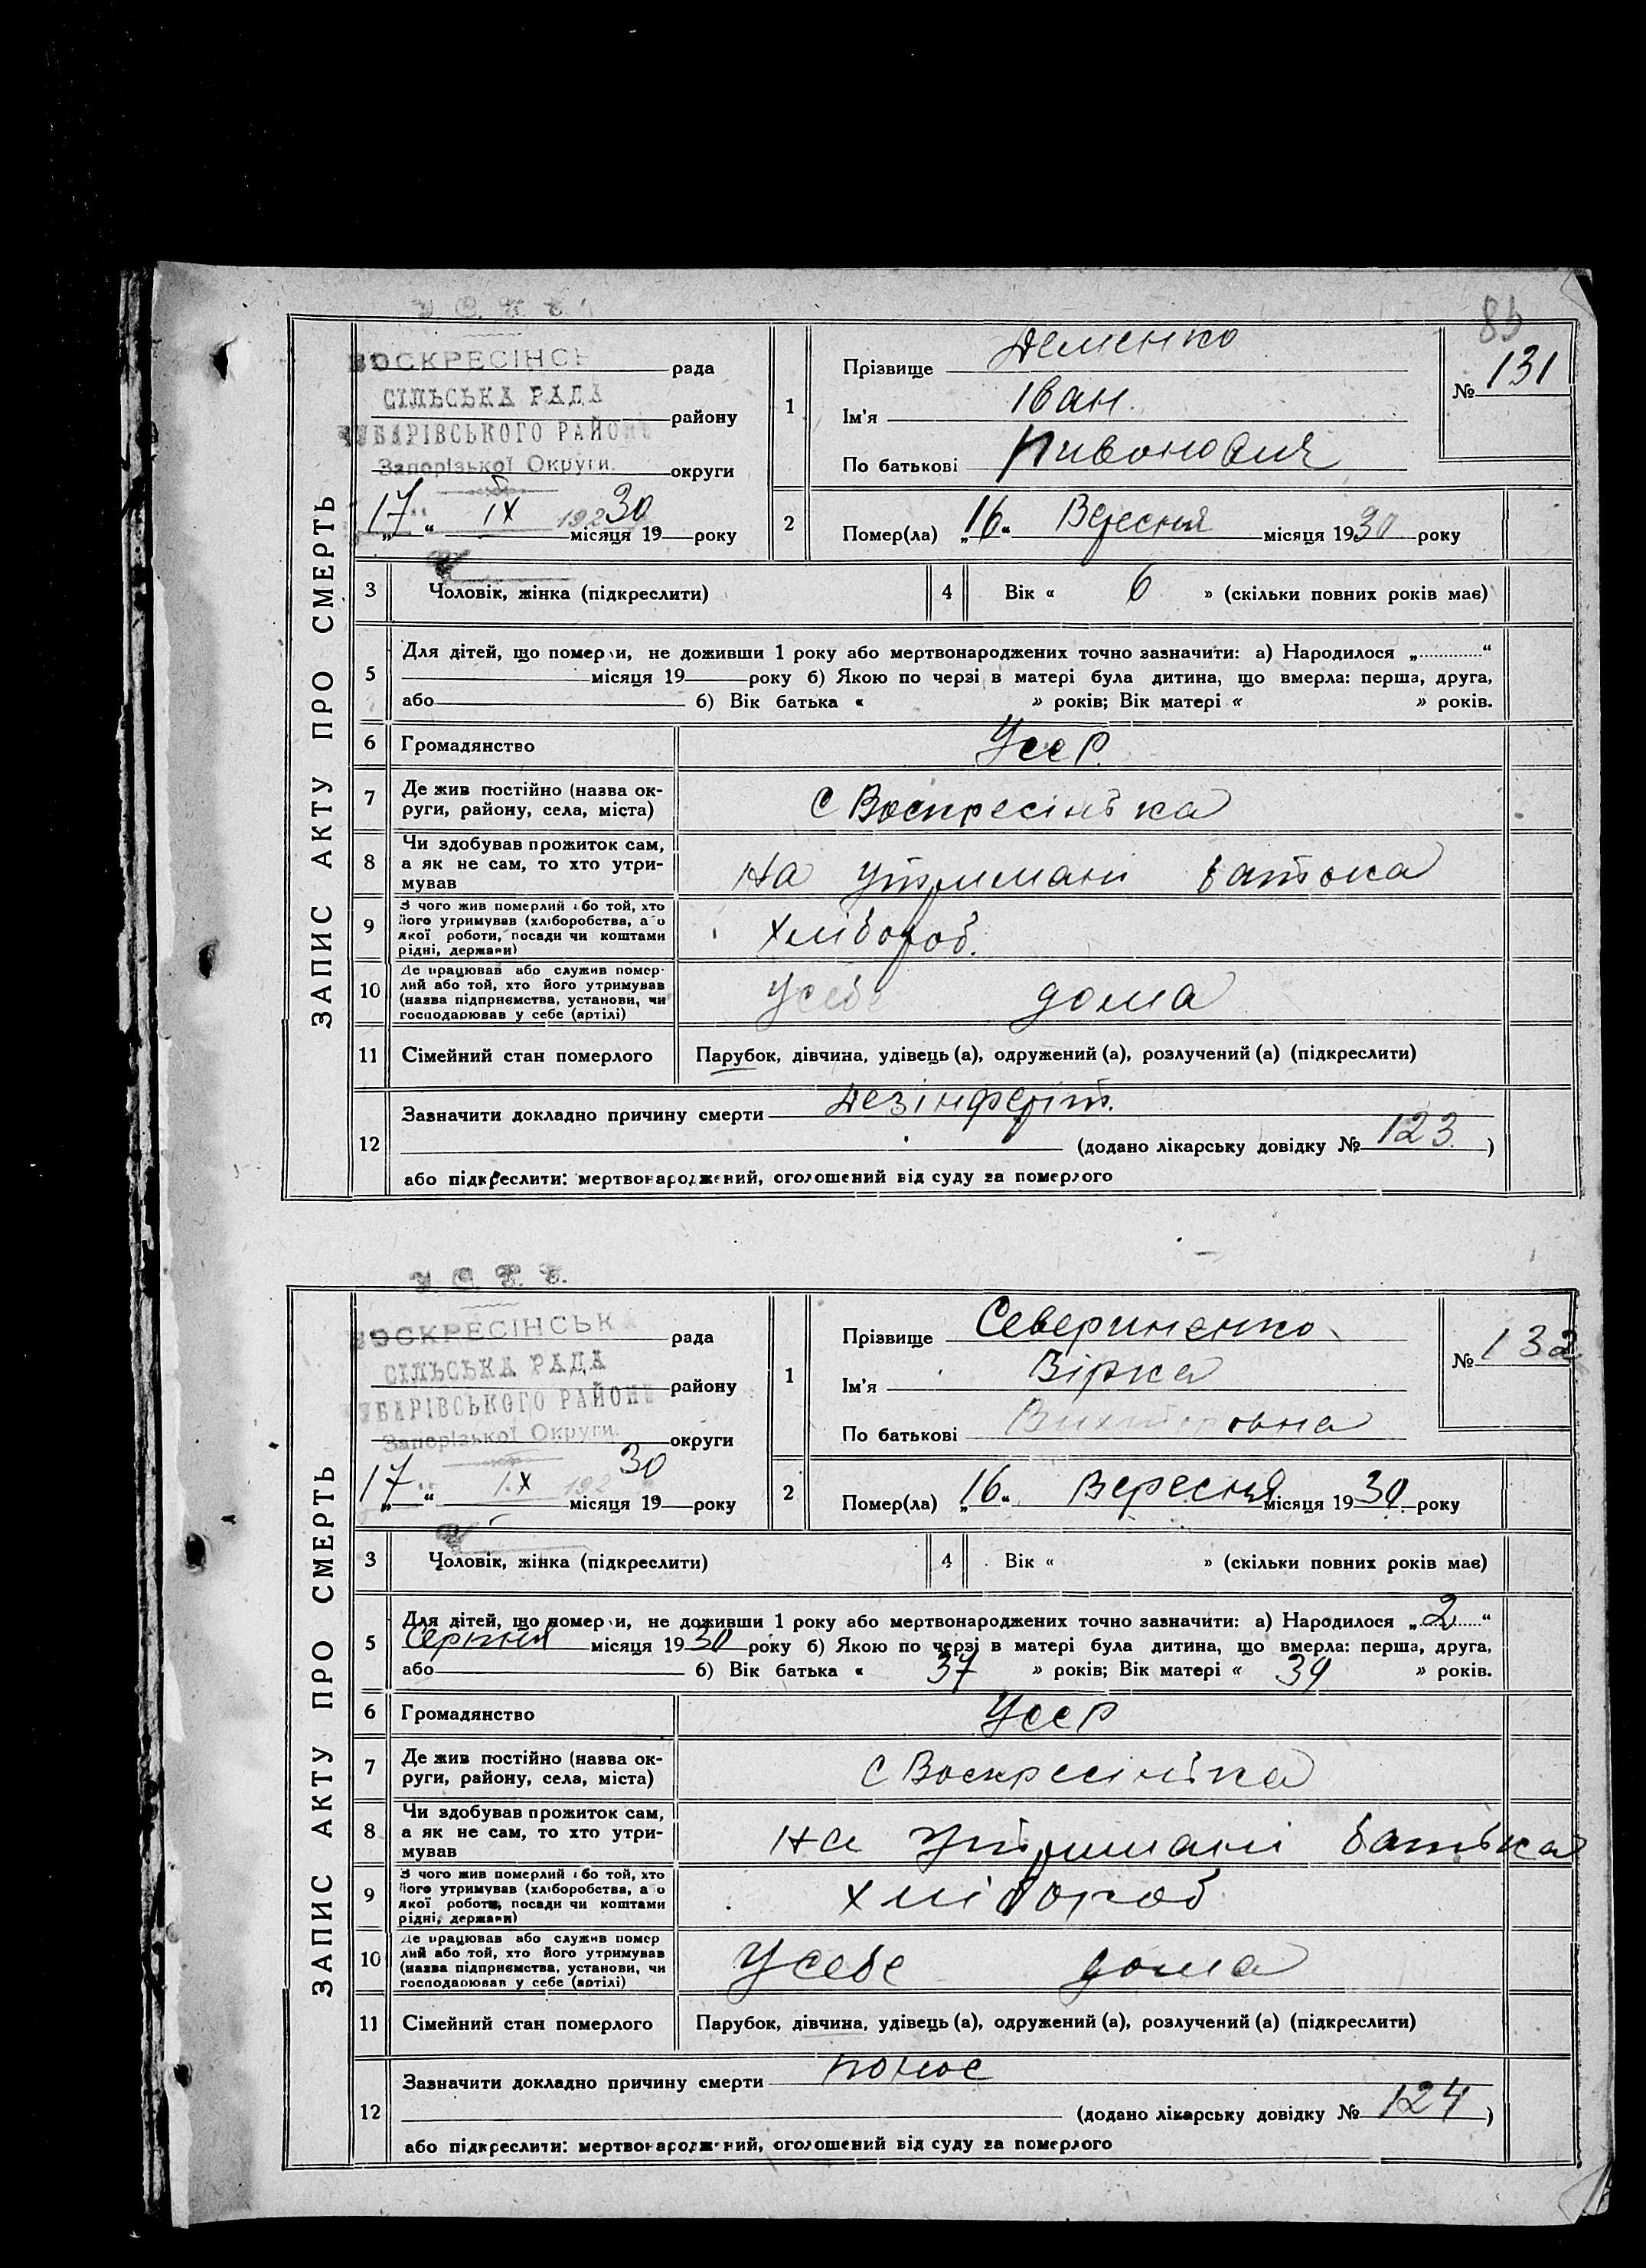 85
ЗАПИС АКТУ ПРО СМЕРТЬ
У. С. Р. Р.
ВОСКРЕСІНСЬ рада
СІЛЬСЬКА РАДА
району
ЧУБАРІВСЬКОГО РАЙОНУ
Запорізької Округи округи
17 " IX 192 30 місяця 19 року
1 Прізвище Деменко
Ім'я Іван.
По батькові Пивонович
№ 131
2 Помер(ла) „16" Вересня місяця 1930 року
3 Чоловік, жінка (підкреслити)
4 Вік « 6 » (скільки повних років має)
5 Для дітей, що померли, не доживши 1 року або мертвонароджених точно зазначити: а) Народилося „ "
місяця 19 року б) Якою по черзі в матері була дитина, що вмерла: перша, друга,
або б) Вік батька « » років; Вік матері « » років.
6 Громадянство Усср.
7 Де жив постійно (назва ок-
руги, району, села, міста) с Воскресінька
8 Чи здобував прожиток сам,
а як не сам, то хто утри-
мував На утримані батька
9 З чого жив померлий або той, хто
його утримував (хліборобства, або
якої роботи, посади чи коштами
рідні, держави) хлібороб.
10 Де працював або служив помер-
лий або той, хто його утримував
(назва підприємства, установи, чи
господарював у себе (артілі) Усебе дома
11 Сімейний стан померлого Парубок, дівчина, удівець (а), одружений (а), розлучений (а) (підкреслити)
12 Зазначити докладно причину смерти Дезінферіт.
(додано лікарську довідку № 123. )
або підкреслити: мертвонароджений, оголошений від суду за померлого
ЗАПИС АКТУ ПРО СМЕРТЬ
У. С. Р. Р.
ВОСКРЕСІНСЬКА рада
СІЛЬСЬКА РАДА
району
ЧУБАРІВСЬКОГО РАЙОНУ
Запорізької Округи округи
17 " IX 192 30 місяця 19 року
1 Прізвище Севериненко
Ім'я Вірка
По батькові Вихторовна
№ 132
2 Помер(ла) „16" Вересня місяця 1930 року
3 Чоловік, жінка (підкреслити)
4 Вік « » (скільки повних років має)
5 Для дітей, що померли, не доживши 1 року або мертвонароджених точно зазначити: а) Народилося „2"
Серпня місяця 1930 року б) Якою по черзі в матері була дитина, що вмерла: перша, друга,
або б) Вік батька « 37 » років; Вік матері « 39 » років.
6 Громадянство Усср
7 Де жив постійно (назва ок-
руги, району, села, міста) с Воскресінька
8 Чи здобував прожиток сам,
а як не сам, то хто утри-
мував На утримані батька
9 З чого жив померлий або той, хто
його утримував (хліборобства, або
якої роботи, посади чи коштами
рідні, держави) хлібороб
10 Де працював або служив помер
лий або той, хто його утримував
(назва підприємства, установи, чи
господарював у себе (артілі) Усебе дома
11 Сімейний стан померлого Парубок, дівчина, удівець (а), одружений (а), розлучений (а) (підкреслити)
12 Зазначити докладно причину смерти понос
(додано лікарську довідку № 124 )
або підкреслити: мертвонароджений, оголошений від суду за померлого